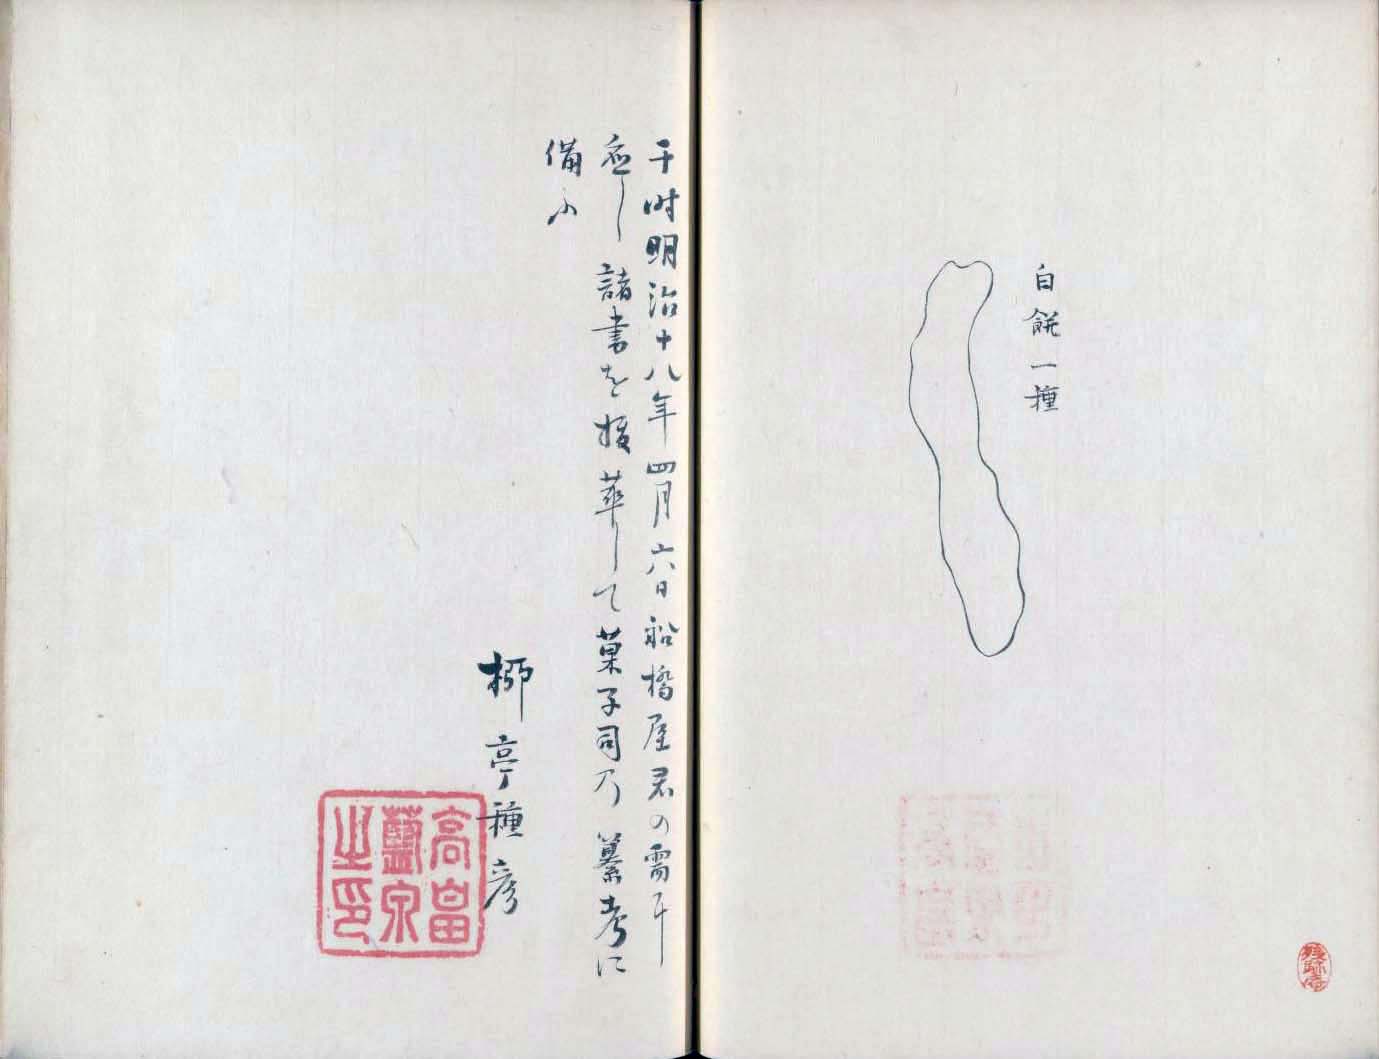 白餅一種
于時明治十八年四月六日船橋屋君の需に
応し諸書を抜萃して菓子司乃纂考に
備ふ
柳亭種彦
高畠
藍泉
之印